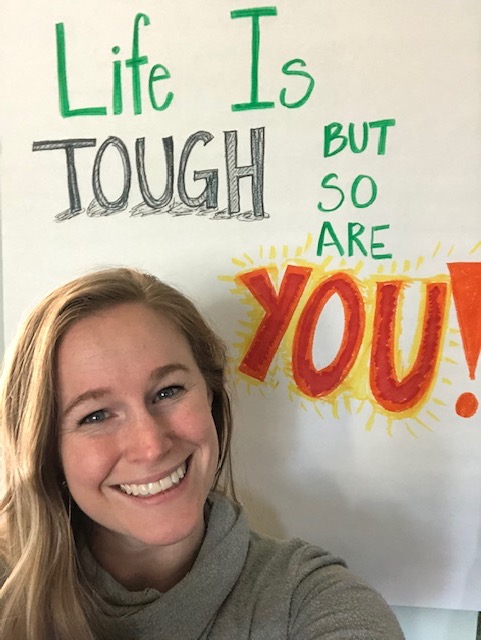 Life Is
TOUGH
BUT
SO
ARE
YOU!